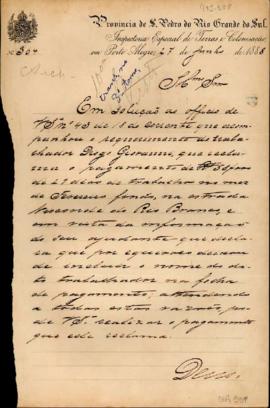 Provincia de S. Pedro do Rio Grande do Sul.
Inspectoria Especial de Terras e Colonisação
em Porto Alegre, 27 de Junho de 1888
Nº 304
Illmo Snr
Em solução ao officio de
VSª nº 43 de 16 do corrente que acom-
panhou o requerimento do traba-
lhador Giovanni, que recla-
ma o pagamento de
de dias de trabalho no mez
de Fevereiro findo, na estrada
Visconde do Rio Branco, e
em vista da informação
do seu ajudante que decla-
ra que por equivoco deixou
de incluir o nome do di-
to trabalhador na folha
de pagamento, attendendo
a todas estas razões, po-
de VSª realizar o pagamento
que elle reclama.
Deus